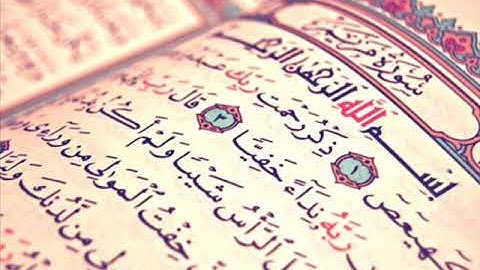 سُورَةُ مَرْيَمَ
بِسْمِ اللَّهِ الرَّحْمَٰنِ الرَّحِيمِ
كهيعص ١ ذِكْرُ رَحْمَتِ رَبِّكَ
رَبَّهُ نِدَآءً خَفِيًّا ٣ قَالَ رَبِّ
الرَّأْسُ شَيْبًا وَلَمْ أَكُنْ
خِفْتُ الْمَوَالِيَ مِن وَرَآءِى
مِن لَّدُنكَ